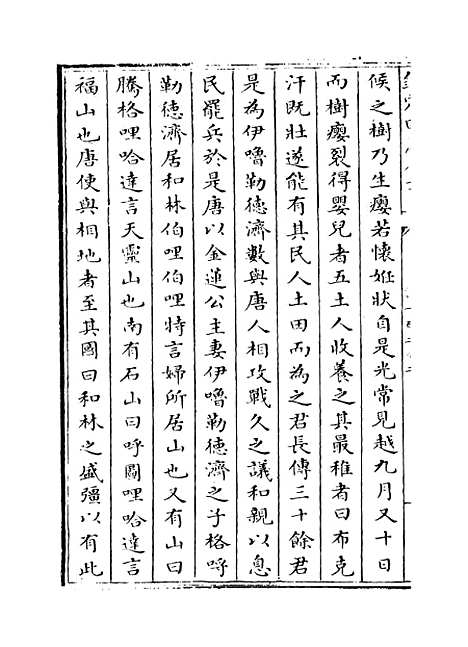 候之樹乃生癭若懷姙狀自是光常見越九月又十日
而樹癭裂得嬰兒者五土人收養之其最稚者曰布克
汗既壯遂能有其民人土田而為之君長傳三十餘君
是為伊嚕勒德濟數與唐人相攻戰久之議和親以息
民罷兵於是唐以金蓮公主妻伊嚕勒德濟之子格哷
勒德濟居和林伯哩伯哩特言婦所居山也又有山曰
騰格哩哈達言天靈山也南有石山曰呼圖哩哈達言
福山也唐使與相地者至其國曰和林之盛彊以有此